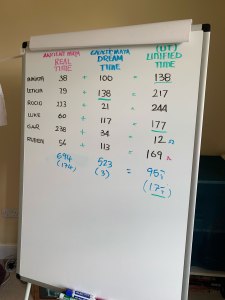 ANCIENT MAYA GUATEMAYA (UT)
REAL DREAM UNIFIED
TIME TIME TIME
38 + 100 = 138
LETICIA 79 + 138 = 217
ROCIO 223 + 21 = 244
LUKE 60 + 117 = 177
238 + 34 = 12
RUBEN 56 + 113 = 169
694 523
(174) (3)